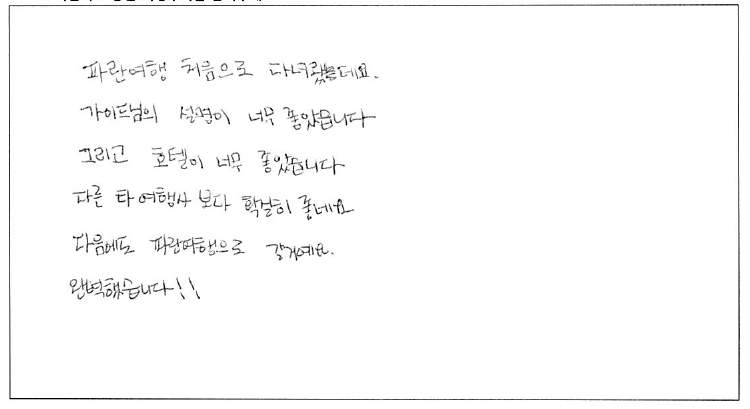 파란여행 처음으로 다녀왔는데요.
가이드님의 설명이 너무 좋았습니다
그리고 호텔이 너무 좋았습니다
다른 타여행사 보다 확실히 좋네요
다음에도 파란여행으로 갈게예요.
완벽했습니다!!